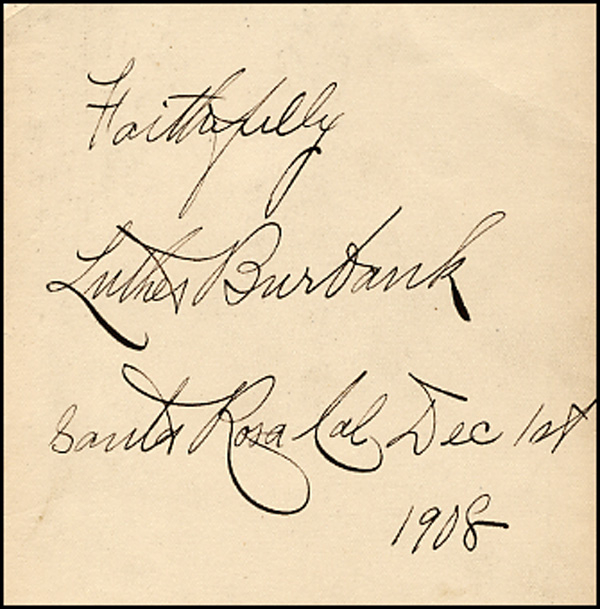 Faithfully
Luther Burbank
Santa Rosa Cal, Dec 1st
1908